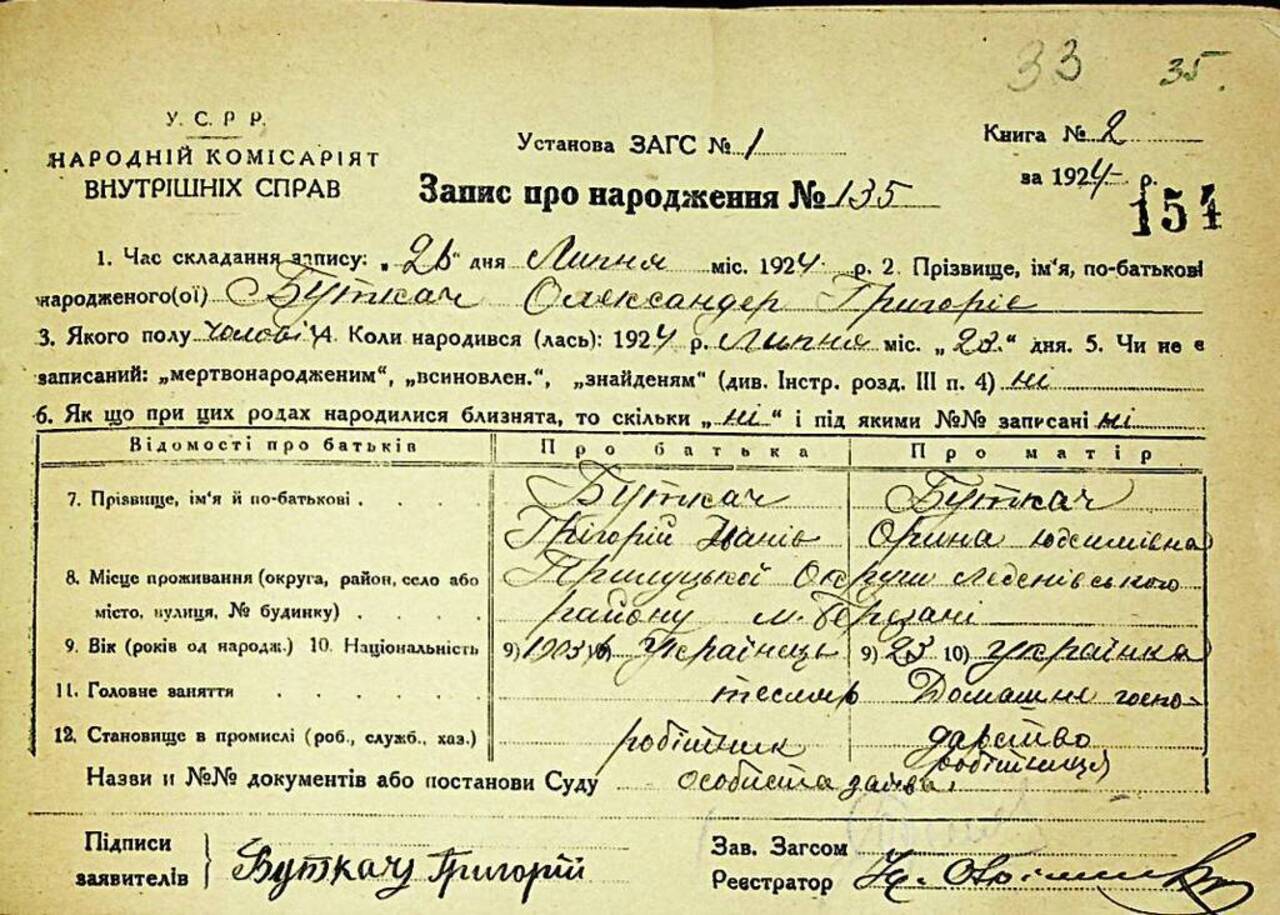 33 35.
У. С. Р Р.
НАРОДНІЙ КОМІСАРІЯТ
ВНУТРІШНІХ СПРАВ
Установа ЗАГС № 1
Книга № 2
за 1924 р.
Запис про народження № 135
154
1. Час складання запису: „ " дня Липня міс. 1924 р. 2. Прізвище, ім'я, по-батькові
народженого(ої) Буткач Олександер Григоріє
3. Якого полу чолові 4. Коли народився (лась): 1924 р. Липня міс. „23." дня. 5. Чи не є
записаний: „мертвонародженим", „всиновлен.", „знайденям" (див. Інстр. розд. III п. 4) ні
6. Як що при цих родах народилися близнята, то скільки „ні" і під якими №№ записані ні
Відомості про батьків Про батька Про матір
7. Прізвище, ім'я й по-батькові . . . . Буткач Буткач
Грігорій Іванів Орина
8. Місце проживання (округа, район, село або Прилуцької Округи
місто, вулиця, № будинку) . . . . району м. Березані
9. Вік (років од народж.) 10. Національність 9) 10) Українець 9) 23 10) українка
11. Головне заняття . . . . . . тесляр Домашнє госпо-
12. Становище в промислі (роб., служб., хаз.) робітник дарство
робітниця
Назви и №№ документів або постанови Суду особиста заява.
Підписи
заявителів Буткач Григорій
Зав. Загсом
Реєстратор